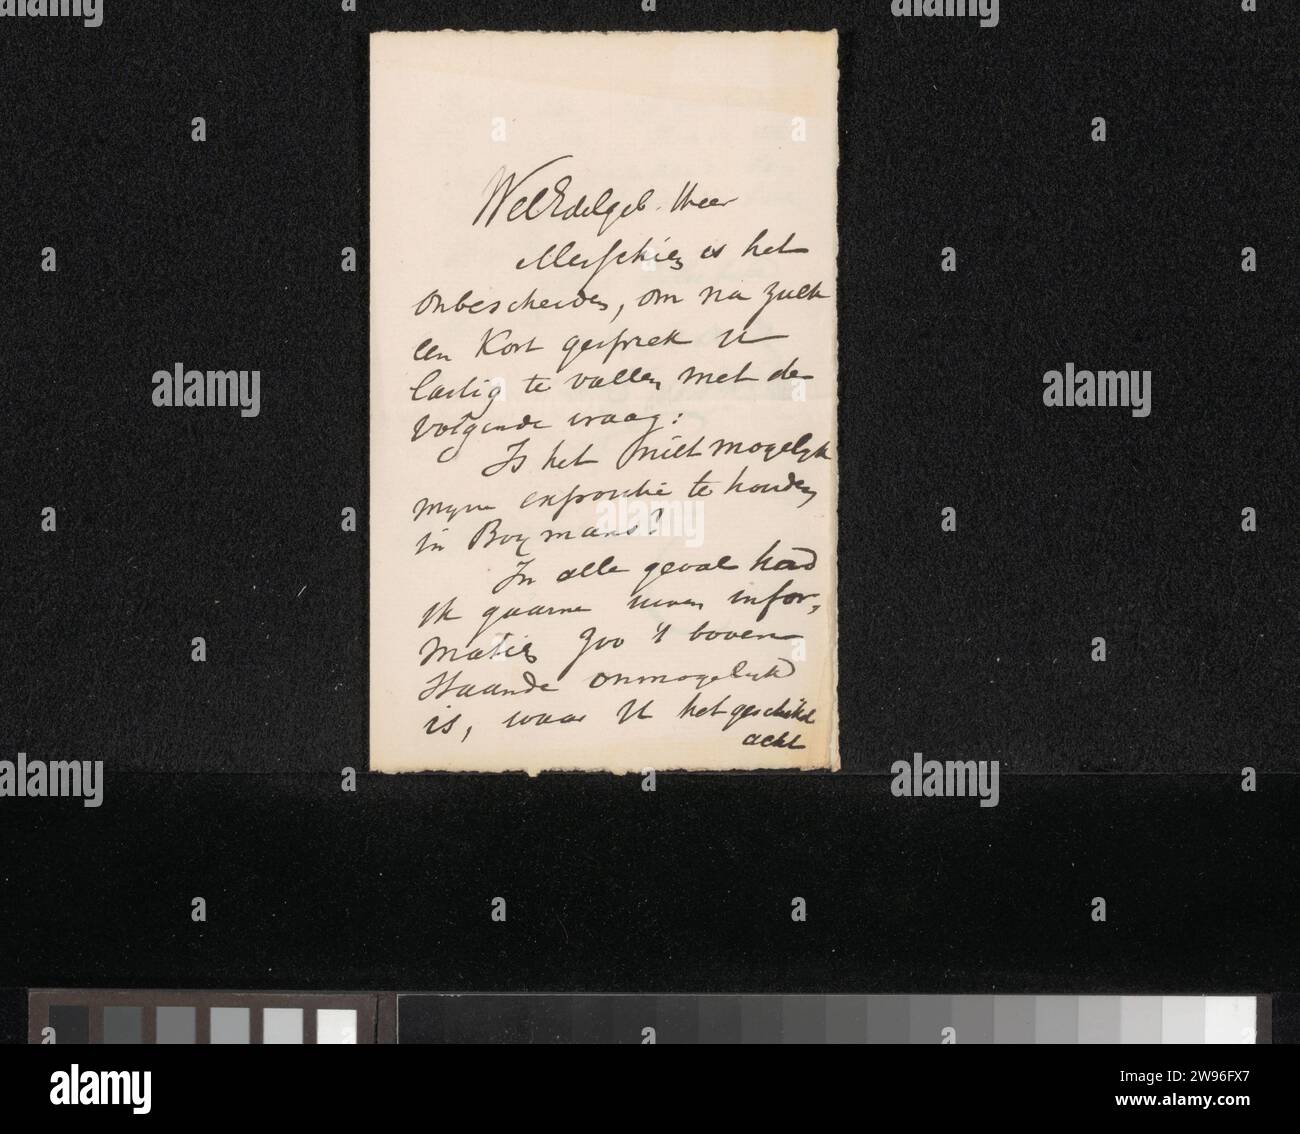 WelEdelgeb. Heer
Misschien is het
onbescheiden, om na zulk
een kort gesprek U
lastig te vallen met de
volgende vraag:
Is het niet mogelyk
myne expositie te houden
in Boymans?
In alle geval had
ik gaarne uwen infor,
maties zoo 't boven
staande onmogelyk
is, waar U het geschikst
acht
alamy
alamy
Image ID: 2W96FX7
www.alamy.com